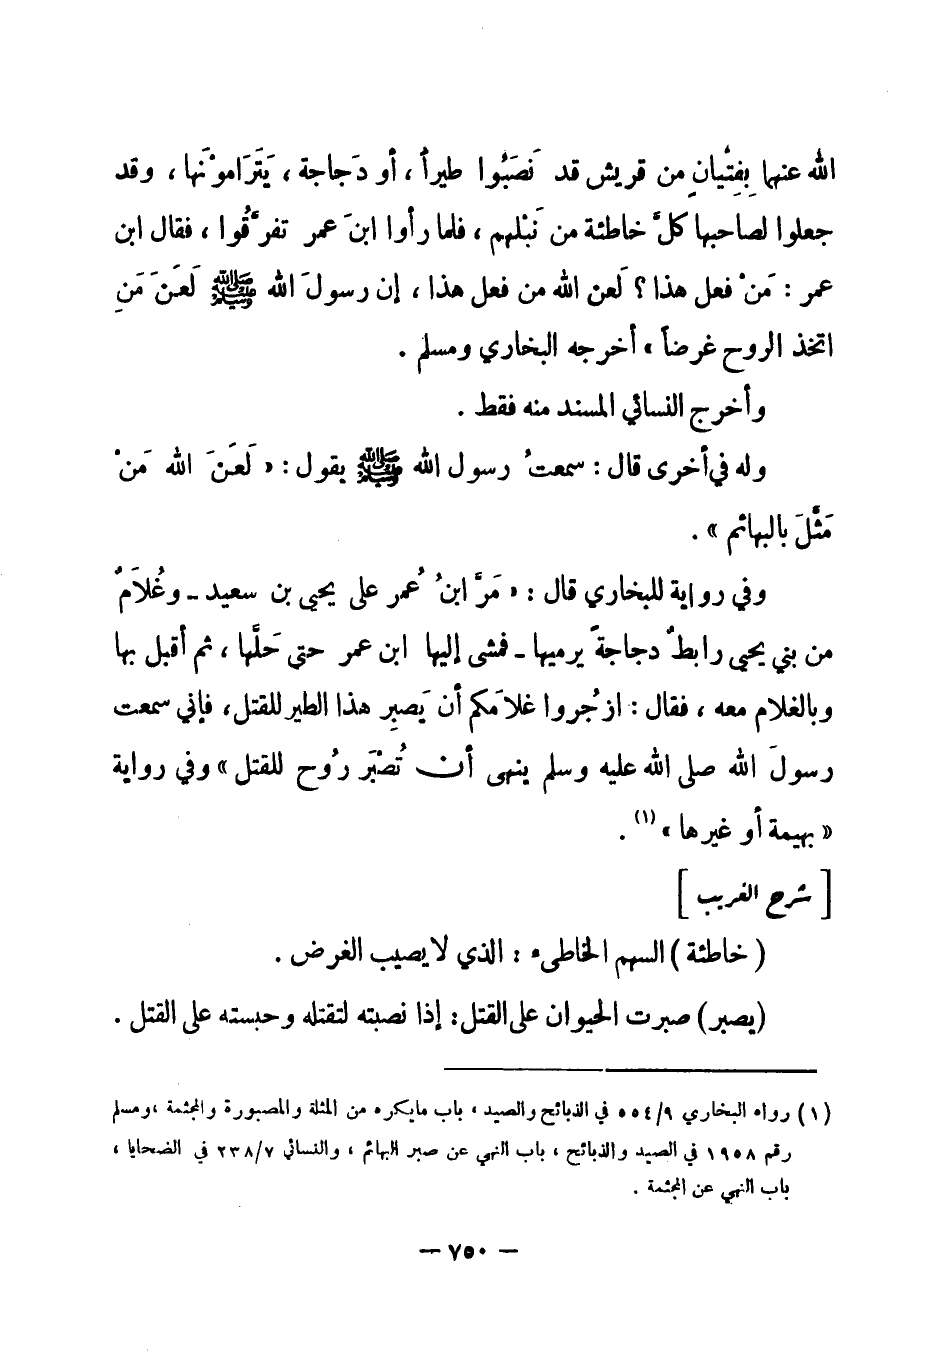 الله عنهما بِفِتْيانٍ من قريش قد نَصَبُوا طيراً ، أو دَجاجة ، يَتَرَامَوْنَها ، وقد
جعلوا لصاحبها كلَّ خاطئة من نَبْلهم ، فلما رأوا ابنَ عمر تفرَّقُوا ، فقال ابن
عمر : مَنْ فعل هذا ؟ لَعن الله من فعل هذا ، إن رسولَ الله ﷺ لَعَنَ مَنِ
اتخذ الروح غرضاً » أخرجه البخاري ومسلم .
وأخرج النسائي المسند منه فقط .
وله في أخرى قال : سمعتُ رسول الله ﷺ يقول : « لَعَنَ الله مَنْ
مَثَّلَ بالبهائم » .
وفي رواية للبخاري قال : « مَرَّ ابنُ عُمر على يحيى بن سعيد ـ وغُلَامٌ
من بني يحيى رابطٌ دجاجةً يرميها ـ فمشى إليها ابن عمر حتى حَلَّها ، ثم أقبل بها
وبالغلام معه ، فقال : ازجُروا غلامَكم أن يَصبِر هذا الطير للقتل ، فإني سمعت
رسولَ الله صلى الله عليه وسلم ينهى أن تُصْبَر رُوح للقتل » وفي رواية
« بهيمة أو غيرها » (١) .
[ شرح الغريب ]
( خاطئة ) السهم الخاطىء : الذي لا يصيب الغرض .
(يصبر) صبرت الحيوان على القتل : إذا نصبته لتقتله وحبسته على القتل .
(١) رواه البخاري ٥٥٤/٩ في الذبائح والصيد ، باب مايكره من المثلة والمصبورة والمجثمة ،ومسلم
رقم ١٩٥٨ في الصيد والذبائح ، باب النهي عن صبر البهائم ، والنسائي ٢٣٨/٧ في الضحايا ،
باب النهي عن المجثمة .
— ٧٥٠ —